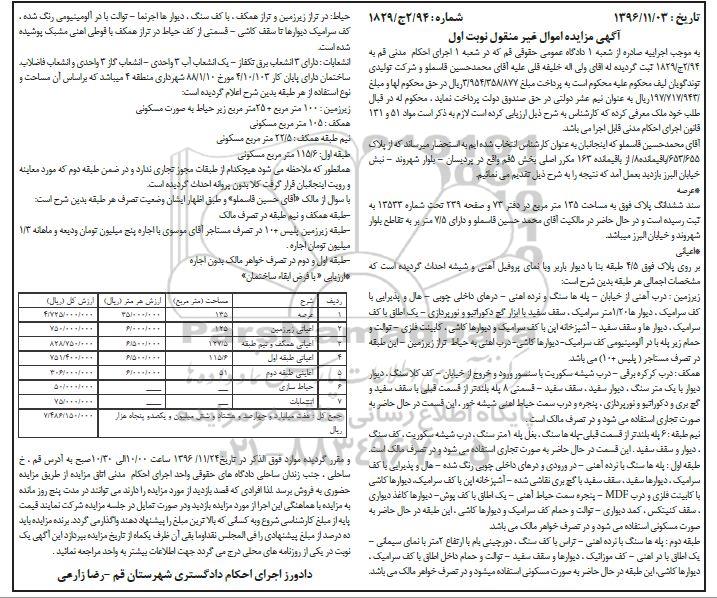 تاریخ : ۱۳۹۶/۱۱/۰۳ شماره : ۲/۹۴ج/۱۸۲۹
آگهی مزایده اموال غیر منقول نوبت اول
به موجب اجراییه صادره از شعبه ۱ دادگاه عمومی حقوقی قم که در شعبه ۱ اجرای احکام مدنی قم به
۲/۹۴ج/۱۸۲۹ ثبت گردیده له اقای ولی اله خلیفه قلی علیه آقای محمدحسین قاسملو و شرکت تولیدی
توندگویان لیف محکوم علیه محکوم است به پرداخت مبلغ ۳/۹۵۴/۳۵۸/۸۷۷ریال در حق محکوم لها و مبلغ
۱۹۷/۷۱۷/۹۴۳/ریال به عنوان نیم عشر دولتی در حق صندوق دولت پرداخت نماید ، محکوم له در قبال
طلب خود ملک معرفی کرده که کارشناس به شرح ذیل ارزیابی کرده است لازم به ذکر است مواد ۵۱ و ۱۳۱
قانون اجرای احکام مدنی قابل اجرا می باشد.
آقای محمدحسین قاسملو که اینجانبان به عنوان کارشناس انتخاب شده ایم به استحضار میرساند که از پلاک
۶۵۳/۶۵۵باقیمانده۸/ از باقیمانده ۱۶۳ مکرر اصلی بخش ۵قم واقع در پردیسان – بلوار شهروند – نبش
خیابان البرز بازدید بعمل آمد که نتیجه را به شرح ذیل تقدیم می نمائیم.
*عرصه
سند ششدانگ پلاک فوق به مساحت ۱۳۵ متر مربع در دفتر ۷۳ و صفحه ۲۳۹ تحت شماره ۱۳۵۳۳
ثبت رسیده است و در حال حاضر در مالکیت آقای محمد حسین قاسملو و دارای ۷/۵ متر بر به تقاطع بلوار
شهروند و خیابان البرز میباشد.
*اعیانی
بر روی پلاک فوق ۴/۵ طبقه بنا با دیوار باربر وبا نمای پروفیل آهنی و شیشه احداث گردیده است که
مشخصات اجمالی هر طبقه بدین شرح است:
زیرزمین : درب آهنی از خیابان – پله ها سنگ و نرده اهنی – درهای داخلی چوبی – هال و پذیرایی با
کف سرامیک ، دیوار ها۱/۲۰متر سرامیک ، سقف سفید با ابزار گچ دکوراتیو و نورپردازی – یک اطاق با کف
سرامیک ، دیوار ها و سقف سفید – آشپزخانه این با کف سرامیک و دیوارها کاشی ، کابینت فلزی – توالت و
حمام زیر پله با در آلومینیومی کف سرامیک- دیوارها کاشی- درب اهنی به حیاط تراز زیرزمین – این طبقه
در تصرف مستاجر ( پلیس ۱۰+) می باشد.
همکف : درب کرکره برقی – درب شیشه سکوریت با سنسور ورود و خروج از خیابان – کف کلا سنگ ، دیوار
دیوار با یک متر سنگ ، دیوار سفید ، سقف سفید – قسمتی ۸ پله بلندتر از قسمت قبلی با سقف سفید و
گچ بری و دکوراتیو و نورپردازی ، پنجره و درب سمت حیاط اهنی شیشه خور . این قسمت در حال حاضر به
صورت تجاری استفاده می شود و در تصرف مالک است.
نیم طبقه : ۶ پله بلندتر از قسمت قبلی-پله ها سنگ ، بغل پله ۱متر سنگ ، درب شیشه سکوریت ، کف سنگ
، دیوار و سقف سفید . این قسمت در حال حاضر به صورت تجاری استفاده می شود و در تصرف مالک است.
طبقه اول : پله ها سنگ با نرده آهنی – در ورودی و درهای داخلی چوبی رنگ شده – هال و پذیرایی با کف
سرامیک ، دیوارها سفید ، سقف سفید با گچ بری نقاشی شده – آشپزخانه این با کف سرامیک، دیوارها کاشی
با کابینت فلزی و درب MDF – پنجره سمت حیاط آهنی – یک اطاق با کف پوش – دیوارها کاغذ دیواری
، سقف کنیتکس ، کمد دیواری – توالت و حمام کف سرامیک و دیوارها کاشی ، این طبقه در حال حاضر به
صورت مسکونی استفاده می شود و در تصرف خواهر مالک می باشد.
طبقه دوم : پله ها سنگ با نرده اهنی – تراس با کف سنگ ، دورچینی بام با ارتفاع ۲متر با نمای سیمانی –
یک اطاق با در اهنی – کف موزائیک ، دیوارها و سقف سفید – توالت و حمام داخل اطاق با کف سرامیک ،
دیوارها کاشی، این طبقه در حال حاضر به صورت مسکونی استفاده میشود و در تصرف خواهر مالک می باشد.
حیاط: در تراز زیرزمین و تراز همکف ، با کف سنگ ، دیوار ها اجرنما – توالت با در آلومینیومی رنگ شده ،
کف سرامیک دیوارها تا سقف کاشی – قسمتی از کف حیاط در تراز همکف با قوطی اهنی مشبک پوشیده
شده است.
انشعابات : دارای ۳ انشعاب برق تکفاز – یک انشعاب آب ۳ واحدی – انشعاب گاز ۳ واحدی و انشعاب فاضلاب.
ساختمان دارای پایان کار ۴/۱۰/۱۰۳ مورخ ۸۸/۱/۱۰ شهرداری منطقه ۴ میباشد که براساس آن مساحت و
نوع استفاده از هر طبقه بدین شرح اعلام گردیده است:
زیرزمین : ۱۰۰ متر مربع + ۲۵متر مربع زیر حیاط به صورت مسکونی
همکف : ۱۰۵ متر مربع مسکونی
نیم طبقه همکف : ۲۲/۵ متر مربع مسکونی
طبقه اول: ۱۱۵/۶ متر مربع مسکونی
همانطور که ملاحظه می شود هیچکدام از طبقات مجوز تجاری ندارد و در ضمن طبقه دوم که مورد معاینه
و رویت اینجانبان قرار گرفت کلا بدون پروانه احداث گردیده است.
با سوال از مالک «آقای حسین قاسملو» و طبق اظهار ایشان وضعیت تصرف هر طبقه بدین شرح است:
-طبقه همکف و نیم طبقه در تصرف مالک
-طبقه زیرزمین پلیس ۱۰+ در تصرف مستاجر آقای موسوی با اجاره پنج میلیون تومان ودیعه و ماهانه ۱/۳
میلیون تومان اجاره .
-طبقه اول و دوم در تصرف خواهر مالک بدون اجاره
*ارزیابی «با فرض ابقاء ساختمان»
ردیف شرح مساحت (متر مربع) ارزش هر متر (ریال) ارزش کل (ریال)
۱ عرصه ۱۳۵ ۳۵/۰۰۰/۰۰۰ ۴/۷۲۵/۰۰۰/۰۰۰
۲ اعیانی زیرزمین ۱۲۵ ۶/۰۰۰/۰۰۰ ۷۵۰/۰۰۰/۰۰۰
۳ اعیانی همکف و نیم طبقه ۱۲۷/۵ ۶/۵۰۰/۰۰۰ ۸۲۸/۷۵۰/۰۰۰
۴ اعیانی طبقه اول ۱۱۵/۶ ۶/۵۰۰/۰۰۰ ۷۵۱/۴۰۰/۰۰۰
۵ اعیانی طبقه دوم ۵۱ ۶/۰۰۰/۰۰۰ ۳۰۶/۰۰۰/۰۰۰
۶ حیاط سازی — — ۵۰/۰۰۰/۰۰۰
۷ انشعابات — — ۷۵/۰۰۰/۰۰۰
جمع کل : هفت میلیارد و چهارصد و هشتاد و شش میلیون و یکصدو پنجاه هزار ریال ۷/۴۸۶/۱۵۰/۰۰۰
و مقرر گردیده موارد فوق الذکر در تاریخ۱۳۹۶/۱۱/۲۴ ساعت ۱۰/۰۰الی ۱۰/۳۰صبح به آدرس قم ، خ
ساحلی ، جنب زندان ساحلی دادگاه های حقوقی واحد اجرای احکام مدنی اتاق مزایده از طریق مزایده
حضوری به فروش برسد .لذا افرادی که قصد بازدید از مورد مزایده را دارند می توانند در مدت پنج روز مانده
به مزایده با هماهنگی این اجرا از مورد مزایده بازدید ودر صورت تمایل در جلسه مزایده شرکت نمایند قیمت
پایه از مبلغ کارشناسی شروع وبه کسانی که بالاترین مبلغ را پیشنهاد دهند واگذار می گردد. برنده مزایده باید
ده درصد از مبلغ پیشنهادی را فی المجلس نقدا وما بقی آن ظرف یکماه از تاریخ مزایده بپردازد این آگهی یک
نوبت در یکی از روزنامه های محلی درج می گردد جهت اطلاعات بیشتر به واحد مراجعه نمائید .
دادورز اجرای احکام دادگستری شهرستان قم –رضا زارعی